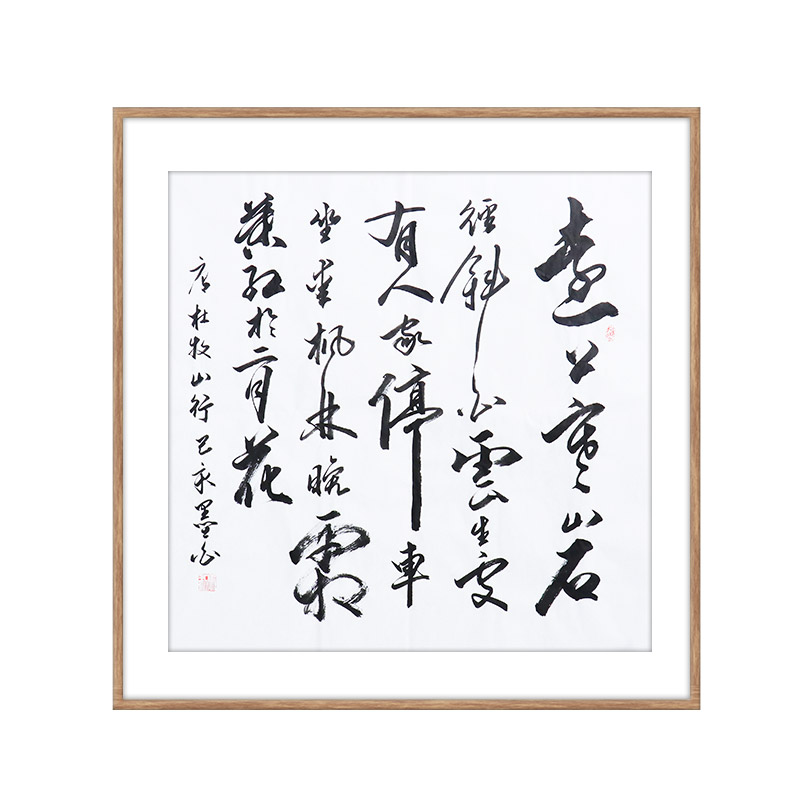 遠上寒山石
徑斜白雲生處
有人家停車
坐愛楓林晚霜
葉紅於二月花
唐杜牧山行己亥墨